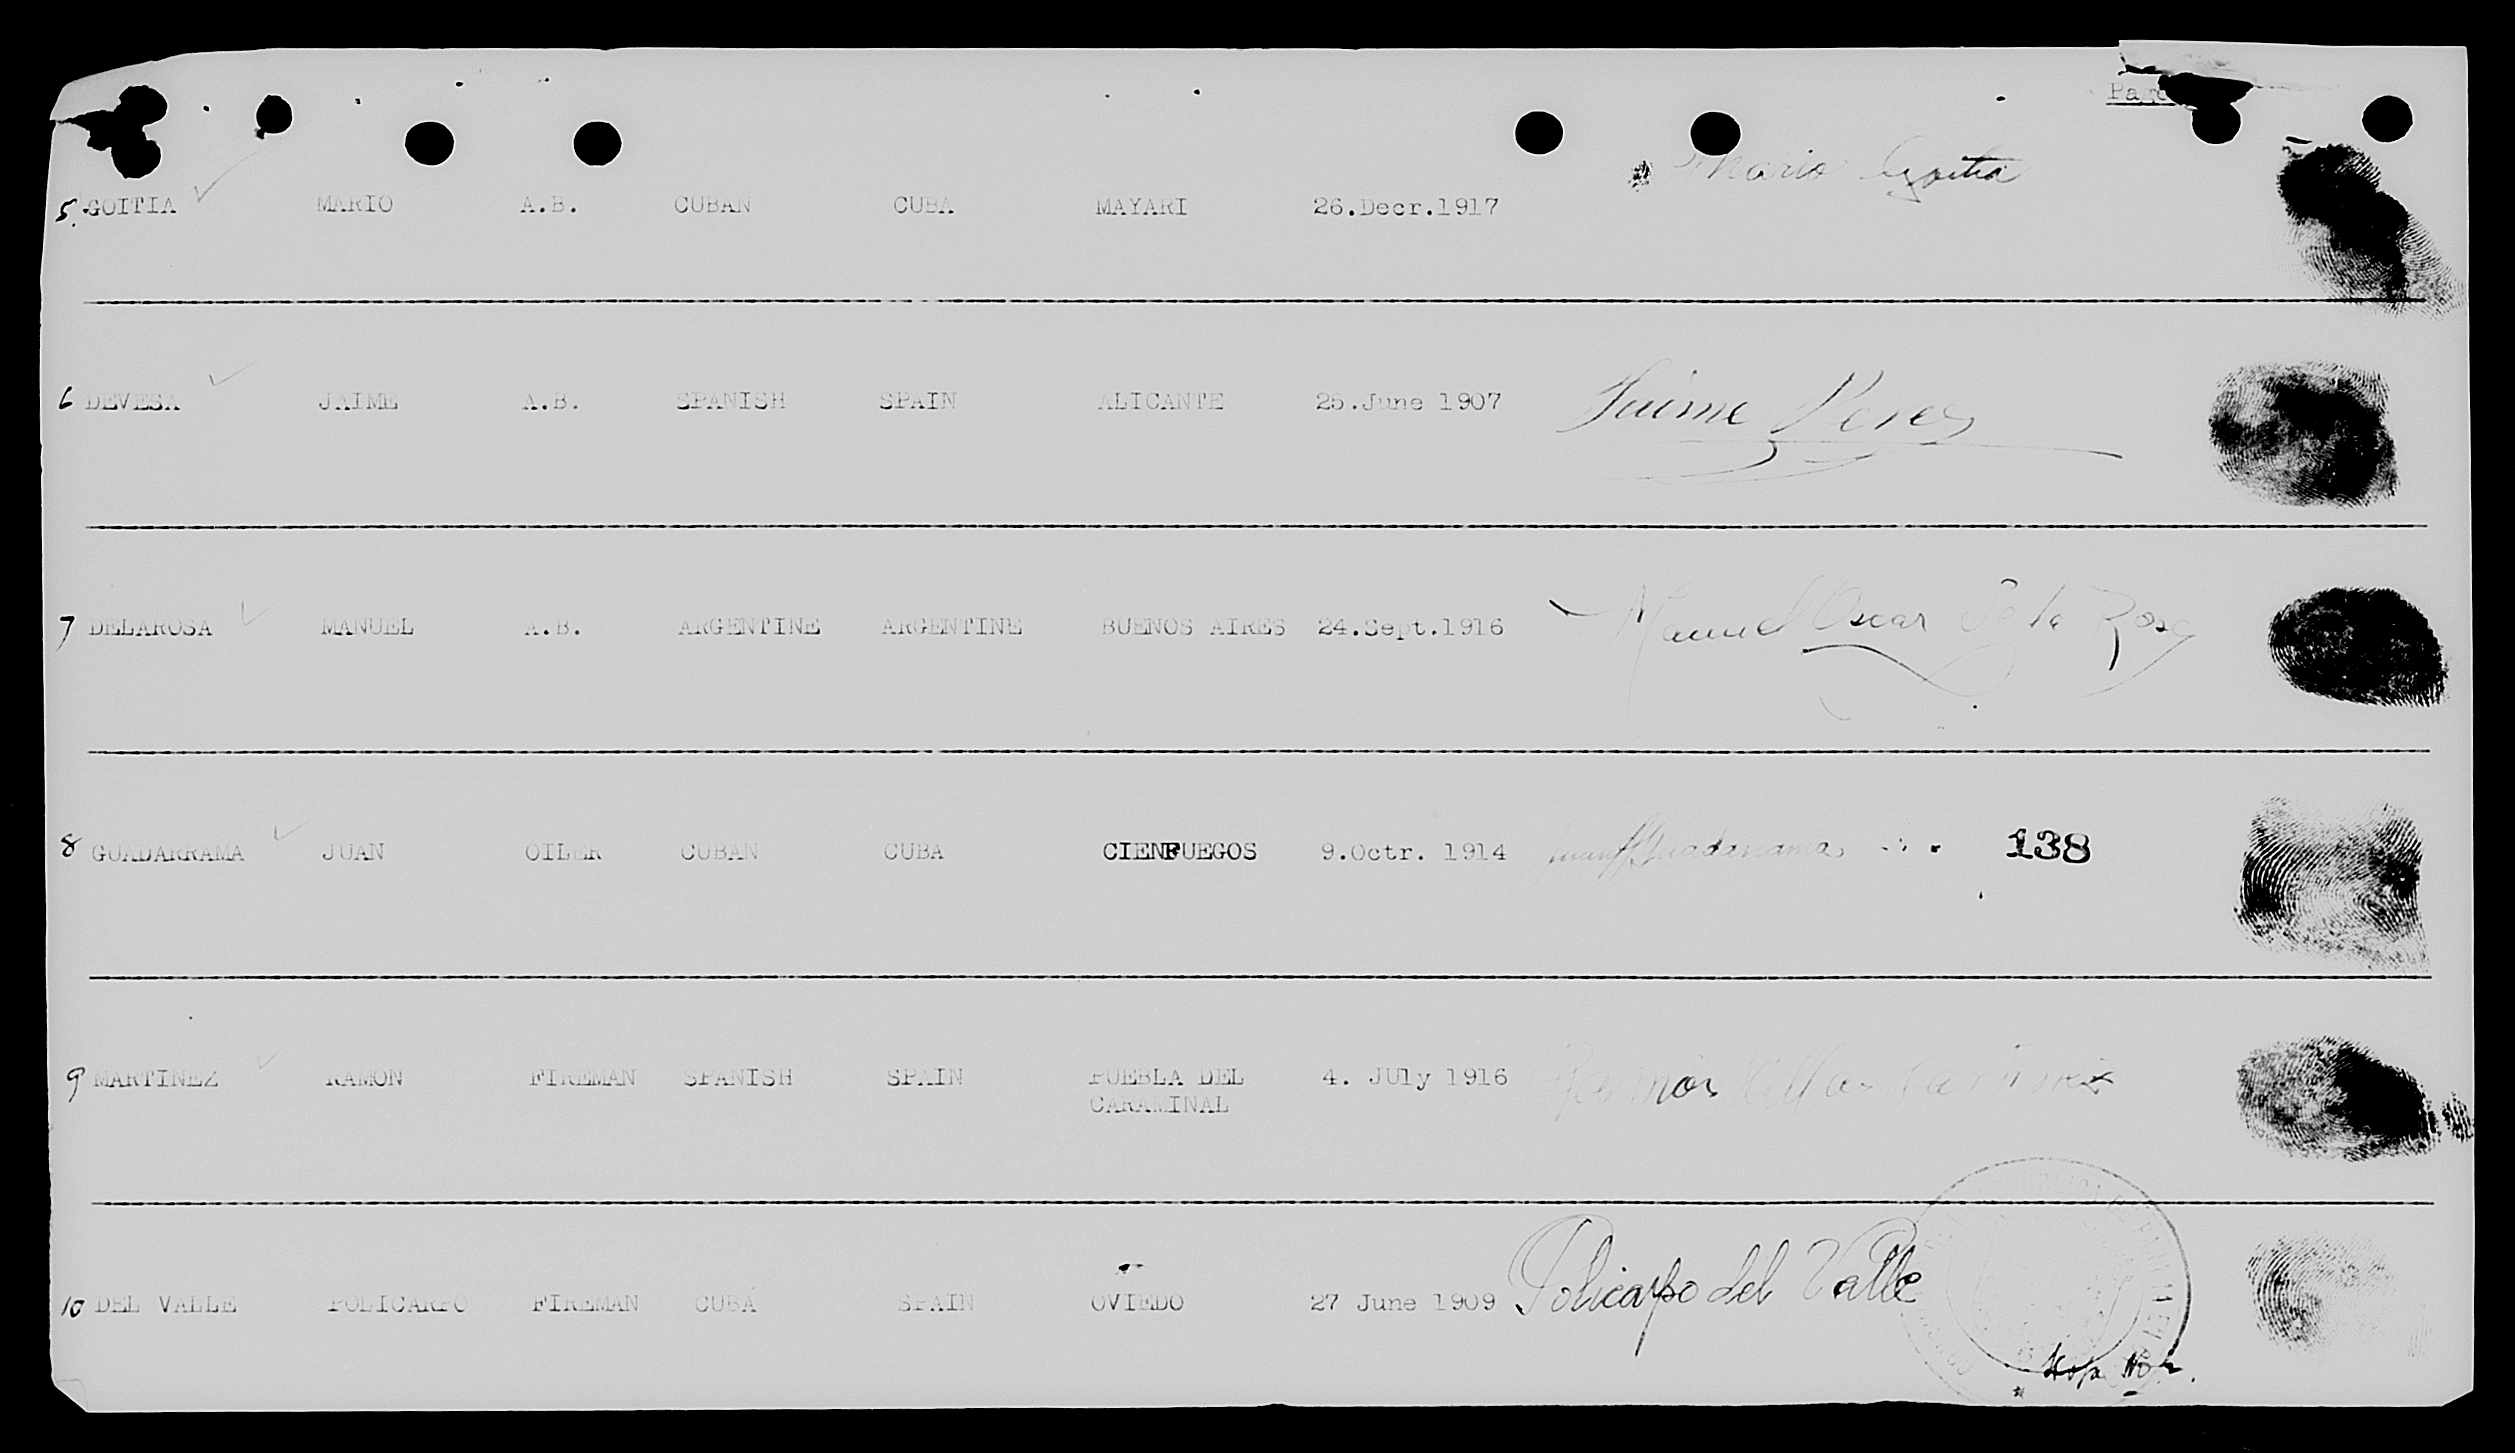 5. GOITIA MARIO A.B. CUBAN CUBA MAYARI 26.Decr.1917 Mario Goitia
6 DEVESA JAIME A.B. SPANISH SPAIN ALICANTE 25.June 1907 Jaime
7 DELAROSA MANUEL A.B. ARGENTINE ARGENTINE BUENOS AIRES 24.Sept.1916 Manuel Oscar de la Rosa
8 GUADARRAMA JUAN OILER CUBAN CUBA CIENFUEGOS 9.Octr. 1914 Guadarrama 138
9 MARTINEZ RAMON FIREMAN SPANISH SPAIN PUEBLA DEL 4. JUly 1916 Ramon
CARAMINAL
10 DEL VALLE POLICARPO FIREMAN CUBA SPAIN OVIEDO 27 June 1909 Policarpo del Valle